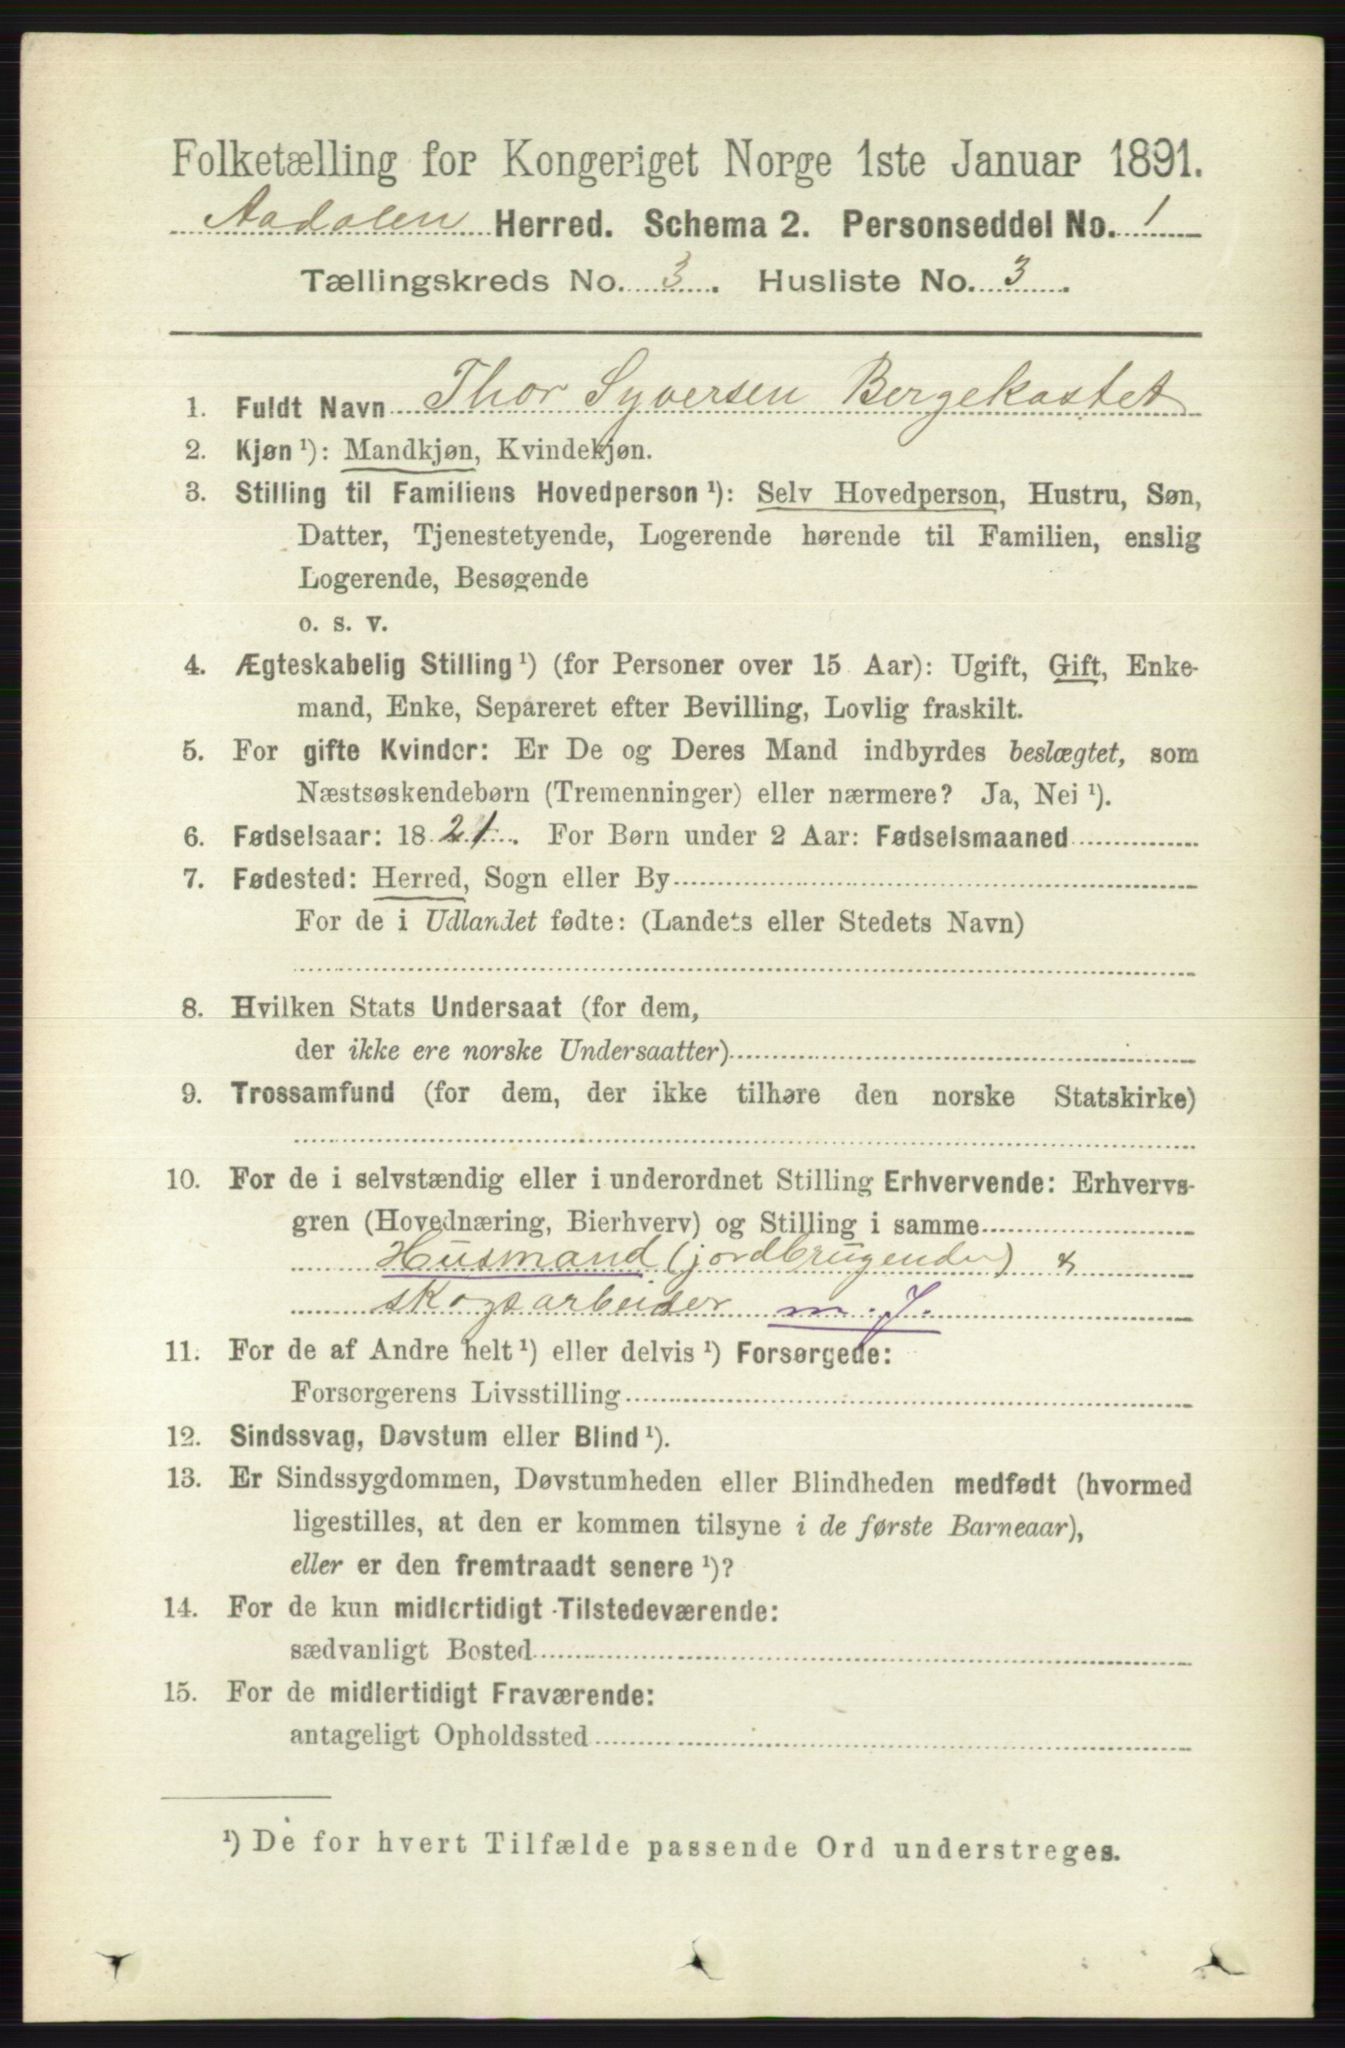 Folketælling for Kongeriget Norge 1ste Januar 1891.
Aadalen Herred. Schema 2. Personseddel No. 1
Tællingskreds No. 3. Husliste No. 3.
1. Fuldt Navn Thor Syversen Bergekastet
2. Kjøn ¹): Mandkjøn, Kvindekjøn.
3. Stilling til Familiens Hovedperson ¹): Selv Hovedperson, Hustru, Søn,
Datter, Tjenestetyende, Logerende hørende til Familien, enslig
Logerende, Besøgende
o. s. v.
4. Ægteskabelig Stilling ¹) (for Personer over 15 Aar): Ugift, Gift, Enke-
mand, Enke, Separeret efter Bevilling, Lovlig fraskilt.
5. For gifte Kvinder: Er De og Deres Mand indbyrdes beslægtet, som
Næstsøskendebørn (Tremenninger) eller nærmere? Ja, Nei ¹).
6. Fødselsaar: 1821. For Børn under 2 Aar: Fødselsmaaned
7. Fødested: Herred, Sogn eller By
For de i Udlandet fødte: (Landets eller Stedets Navn)
8. Hvilken Stats Undersaat (for dem,
der ikke ere norske Undersaatter)
9. Trossamfund (for dem, der ikke tilhøre den norske Statskirke)
10. For de i selvstændig eller i underordnet Stilling Erhvervende: Erhvervs-
gren (Hovednæring, Bierhverv) og Stilling i samme
Husmand (jordbrugende) &
skogsarbeider m. J.
11. For de af Andre helt ¹) eller delvis ¹) Forsørgede:
Forsørgerens Livsstilling
12. Sindssvag, Døvstum eller Blind ¹).
13. Er Sindssygdommen, Døvstumheden eller Blindheden medfødt (hvormed
ligestilles, at den er kommen tilsyne i de første Barneaar),
eller er den fremtraadt senere ¹)?
14. For de kun midlertidigt Tilstedeværende:
sædvanligt Bosted
15. For de midlertidigt Fraværende:
antageligt Opholdssted
¹) De for hvert Tilfælde passende Ord understreges.